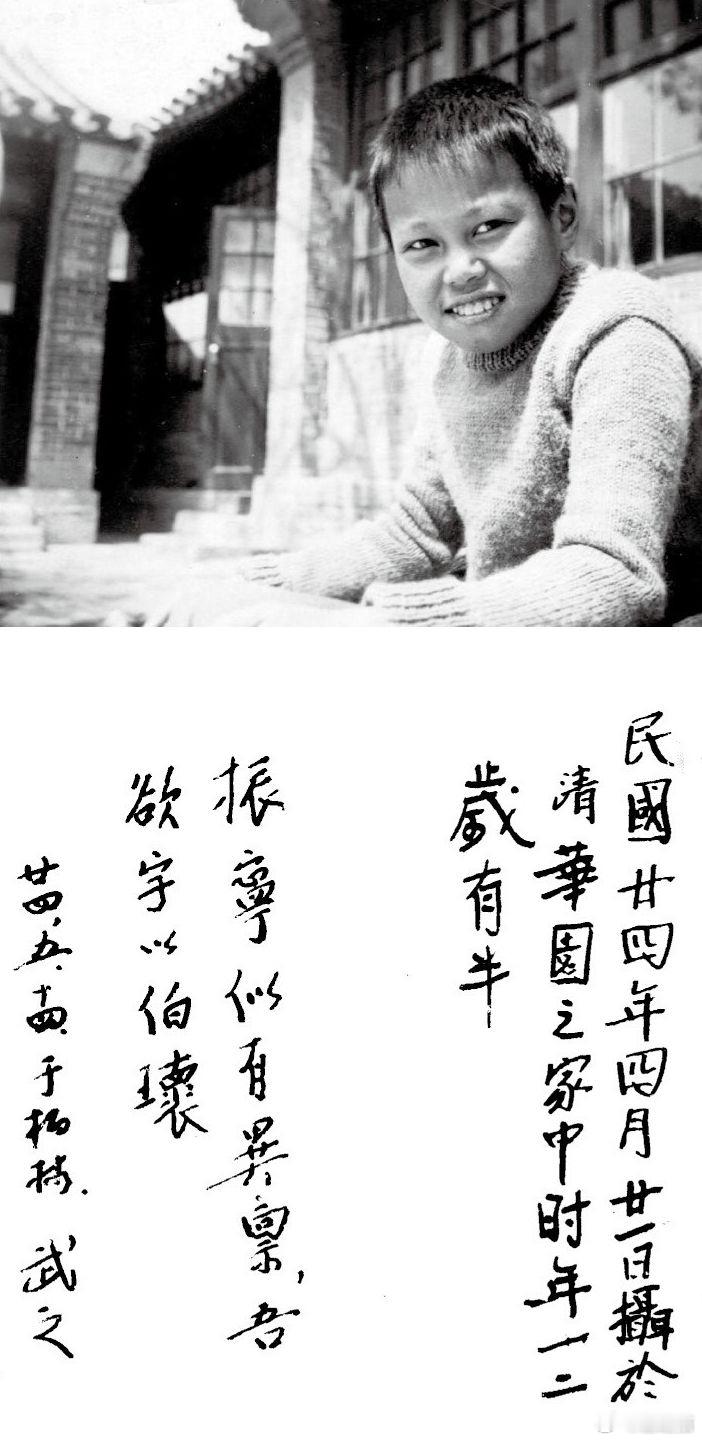 民國廿四年四月廿一日攝於
清華園之家中时年十二
歲有半
振寧似有異稟，吾
欲字以伯瓌
廿四、五、十四、于柏林、武之